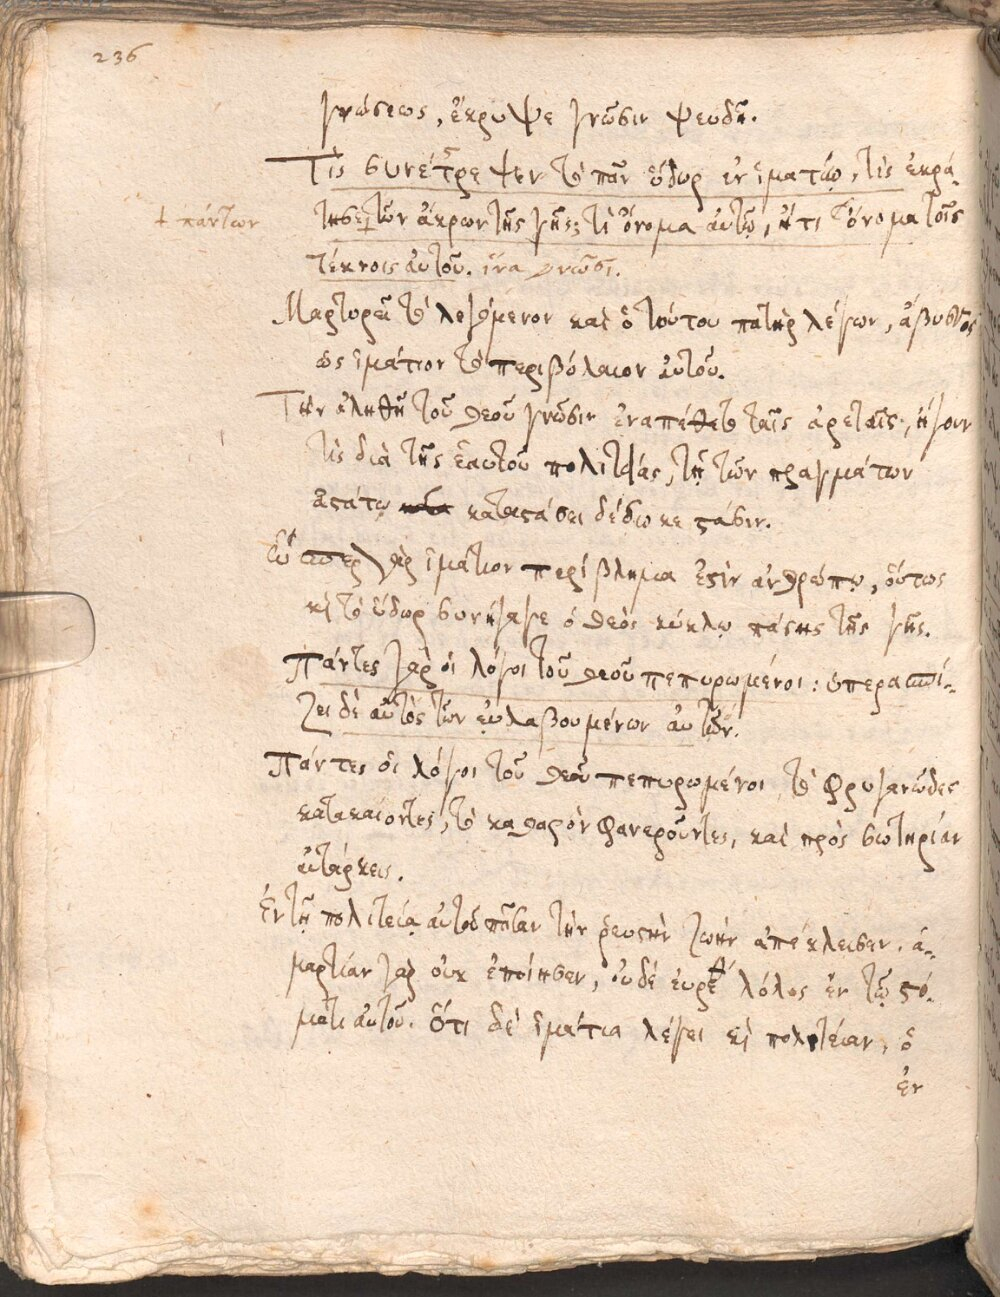 236
γνώσεως, ἔκρυψε γνῶσιν ψευδῆ.
Τίς συνέστρεψεν τὸ πᾶν ὕδωρ ἐν ἱματίῳ, τίς ἐκρά-
τησε τῶν ἄκρων τῆς γῆς; τί ὄνομα αὐτῷ, ἢ τί ὄνομα τοῖς
+ πάντων
τέκνοις αὐτοῦ. ἵνα γνῶσι.
Μαρτυρεῖ τὸ λεγόμενον καὶ ὁ τούτου πατὴρ λέγων, ἄβυσσος
ὡς ἱμάτιον τὸ περιβόλαιον αὐτοῦ.
Τὴν ἀληθῆ τοῦ θεοῦ γνῶσιν ἐναπέθετο ταῖς ἀρεταῖς, ἤγουν
τίς διὰ τῆς ἑαυτοῦ πολιτείας, τῇ τῶν πραγμάτων
ἀστάτῳ καταστάσει δέδωκε στάσιν.
ὥσπερ γὰρ ἱμάτιον περίβλημα ἐστὶν ἀνθρώπῳ, οὕτως
κὶ τὸ ὕδωρ συνήγαγε ὁ θεὸς κύκλῳ πάσης τῆς γῆς.
Πάντες γὰρ οἱ λόγοι τοῦ θεοῦ πεπυρωμένοι: ὑπερασπί-
ζει δὲ αὐτὸς τῶν εὐλαβουμένων αὐτόν.
Πάντες οἱ λόγοι τοῦ θεοῦ πεπυρωμένοι τὸ φρυγανῶδες
κατακαίοντες, τὸ καθαρὸν φανεροῦντες, καὶ πρὸς σωτηρίαν
αὐτάρκεις.
Ἐν τῇ πολιτείᾳ αὐτοῦ πᾶσαν τὴν ῥευστὴν ζωὴν ἀπέκλεισεν. ἁ-
μαρτίαν γὰρ οὐκ ἐποίησεν, οὐδὲ εὑρέθη δόλος ἐν τῷ στό-
ματι αὐτοῦ. ὅτι δὲ ἱμάτια λέγει κὶ πολιτείαν, ὁ
ἐν